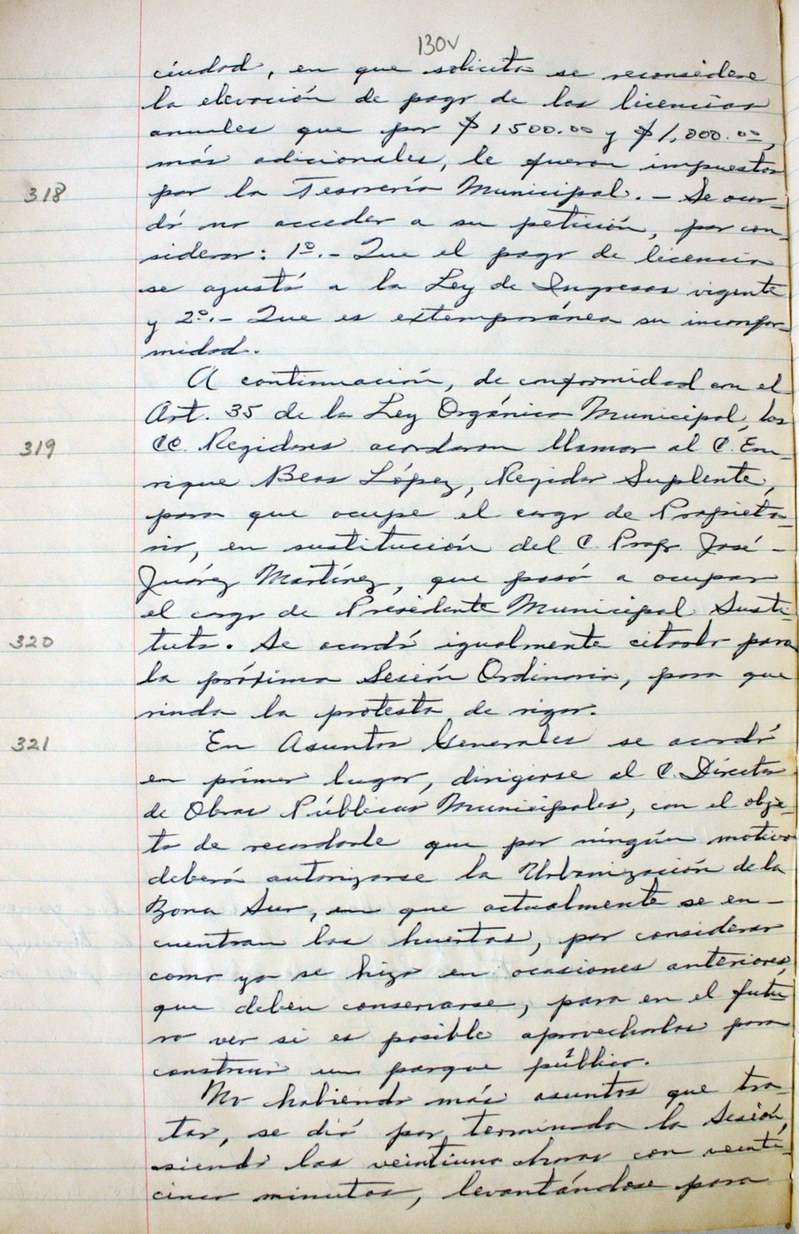 130v
ciudad, en que solicita se reconsidere
la elevación de pago de las licencias
anuales que por $1500.00 y $1,000.00,
más adicionales, le fueron impuestos
318
por la Tesorería Municipal. - Se acor-
dó no acceder a su petición, por con-
siderar: 1º.- Que el pago de licencia
se ajustó a la Ley de Ingresos vigente
y 2º.- Que es extemporánea su inconfor-
midad.
A continuación, de conformidad con el
Art. 35 de la Ley Orgánica Municipal, los
319
CC. Regidores acordaron llamar al C. En-
rique Beas López, Regidor Suplente,
para que ocupe el cargo de Propieta-
rio, en sustitución del C. Profr. José -
Juárez Martínez, que pasó a ocupar
el cargo de Presidente Municipal Susti-
320
tuto. Se acordó igualmente citarlo para
la próxima Sesión Ordinaria, para que
rinda la protesta de rigor.
321
En Asuntos Generales se acordó
en primer lugar, dirigirse al C. Director
de Obras Públicas Municipales, con el obje-
to de recordarle que por ningún motivo
deberá autorizarse la Urbanización de la
Zona Sur, en que actualmente se en-
cuentran las huertas, por considerar
como ya se hizo en ocasiones anteriores,
que deben conservarse, para en el futu
ro ver si es posible aprovecharlas para
construir un parque público.
No habiendo más asuntos que tra-
tar, se dió por terminada la Sesión,
siendo las veintiuna horas con veinti-
cinco minutos, levantándose para